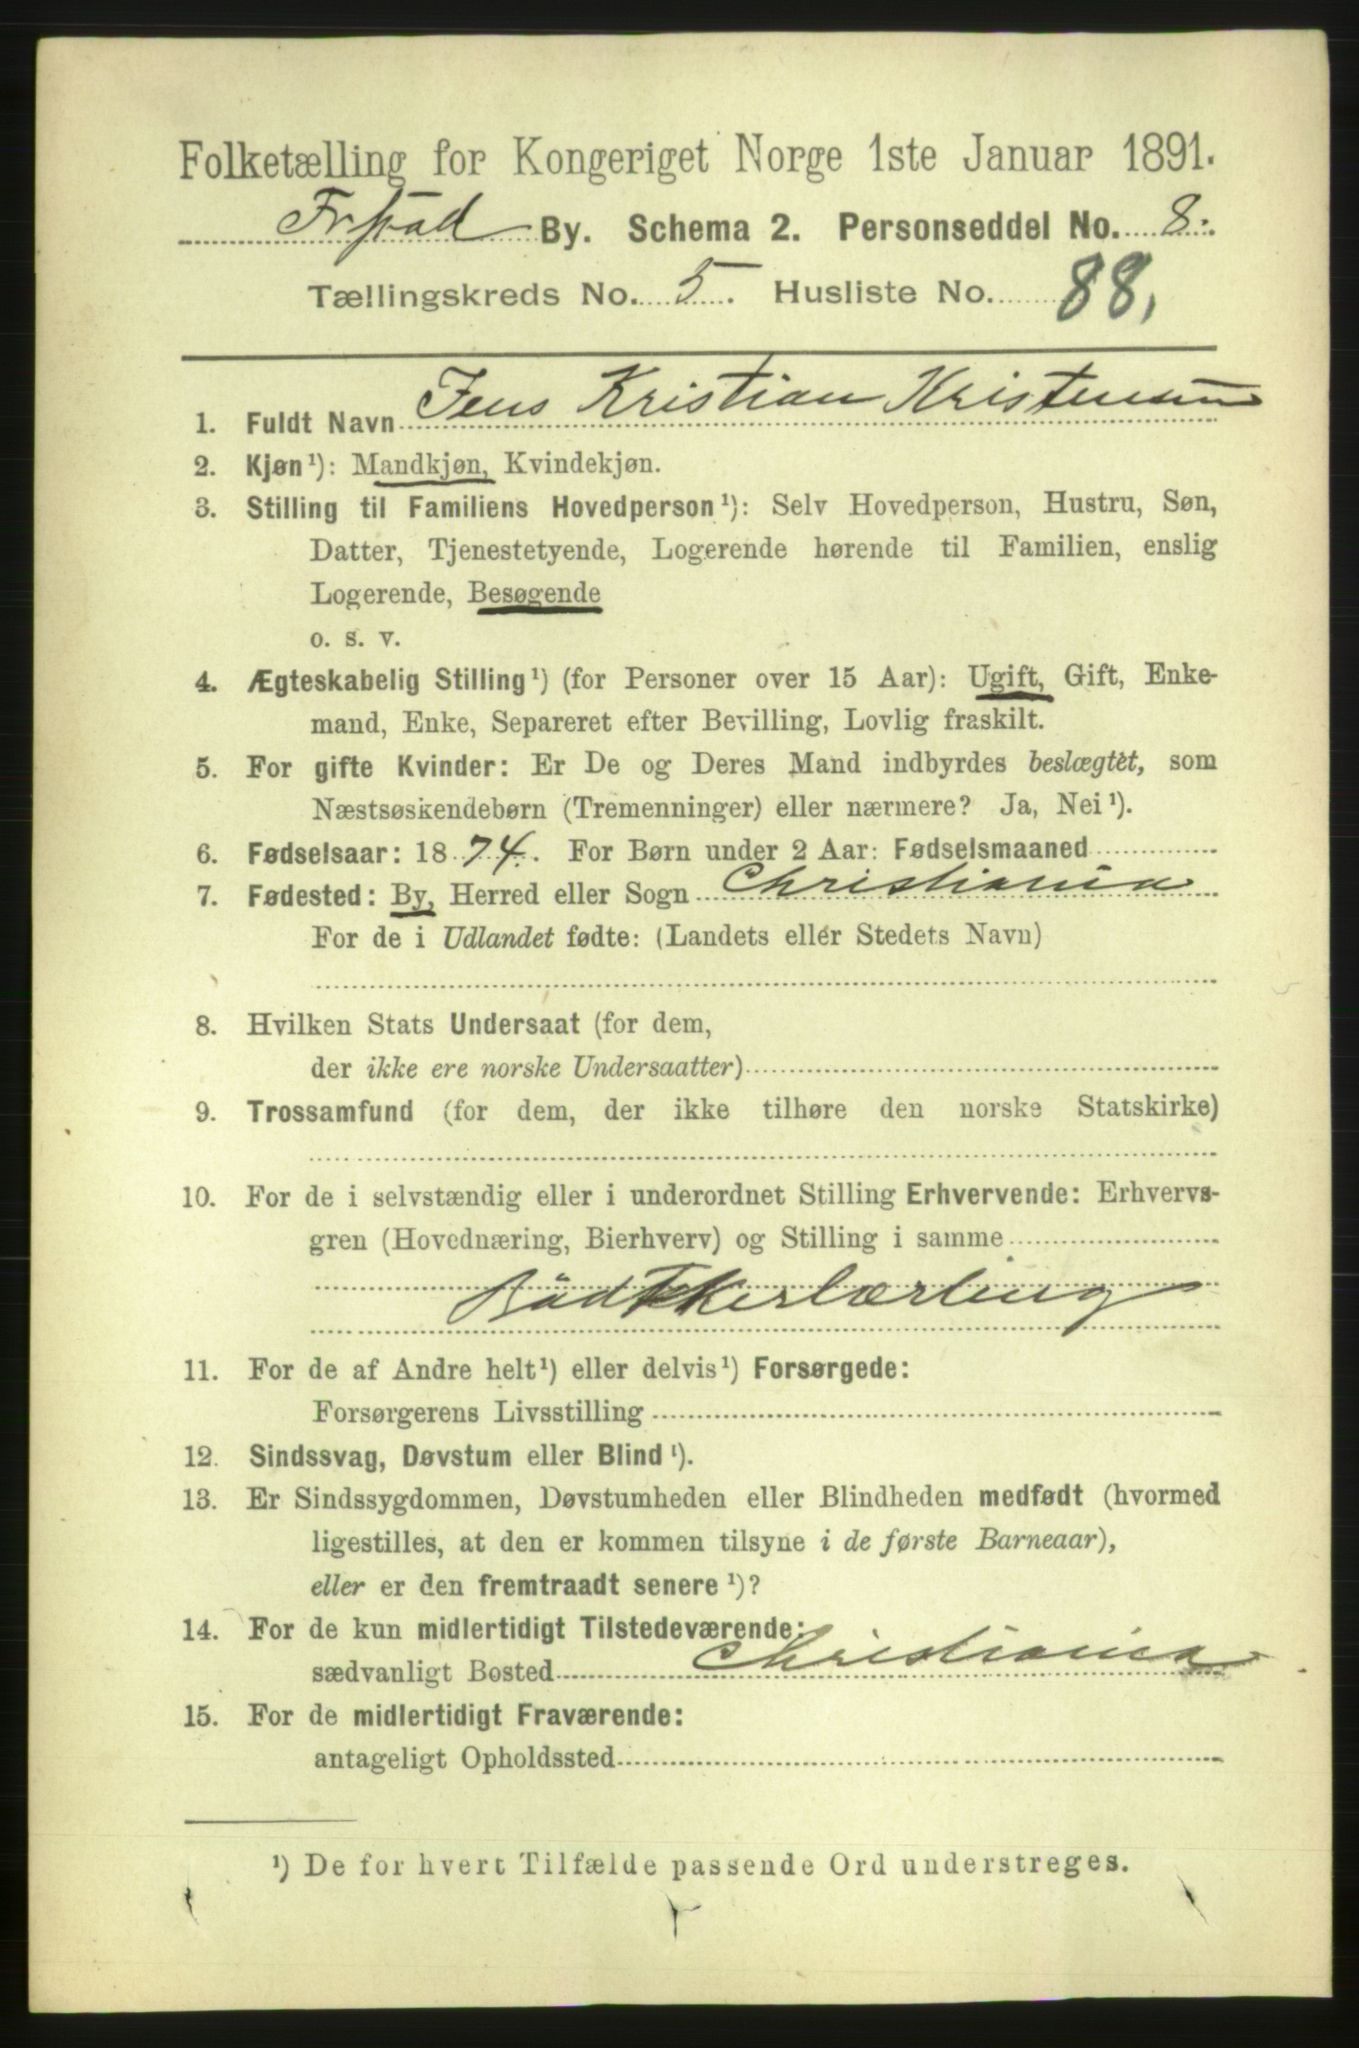 Folketælling for Kongeriget Norge 1ste Januar 1891.
Frstad By. Schema 2. Personseddel No. 8.
Tællingskreds No. 5. Husliste No. 88,
1. Fuldt Navn Jens Kristian Kristensen
2. Kjøn¹): Mandkjøn, Kvindekjøn.
3. Stilling til Familiens Hovedperson¹): Selv Hovedperson, Hustru, Søn,
Datter, Tjenestetyende, Logerende hørende til Familien, enslig
Logerende, Besøgende
o. s. v.
4. Ægteskabelig Stilling¹) (for Personer over 15 Aar): Ugift, Gift, Enke-
mand, Enke, Separeret efter Bevilling, Lovlig fraskilt.
5. For gifte Kvinder: Er De og Deres Mand indbyrdes beslægtet, som
Næstsøskendebørn (Tremenninger) eller nærmere? Ja, Nei¹).
6. Fødselsaar: 1874. For Børn under 2 Aar: Fødselsmaaned
7. Fødested: By, Herred eller Sogn Christiania
For de i Udlandet fødte: (Landets eller Stedets Navn)
8. Hvilken Stats Undersaat (for dem,
der ikke ere norske Undersaatter)
9. Trossamfund (for dem, der ikke tilhøre den norske Statskirke)
10. For de i selvstændig eller i underordnet Stilling Erhvervende: Erhvervs-
gren (Hovednæring, Bierhverv) og Stilling i samme
Bødkkerlærling
11. For de af Andre helt¹) eller delvis¹) Forsørgede:
Forsørgerens Livsstilling
12. Sindssvag, Døvstum eller Blind¹).
13. Er Sindssygdommen, Døvstumheden eller Blindheden medfødt (hvormed
ligestilles, at den er kommen tilsyne i de første Barneaar),
eller er den fremtraadt senere¹)?
14. For de kun midlertidigt Tilstedeværende:
sædvanligt Bosted Christiania
15. For de midlertidigt Fraværende:
antageligt Opholdssted
¹) De for hvert Tilfælde passende Ord understreges.